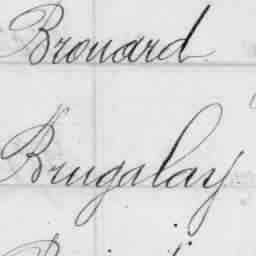 Brouard
Brugalay